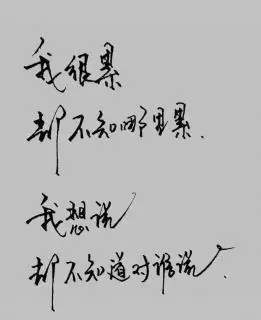 我很累
却不知哪里累.
我想说
却不知道对谁说.